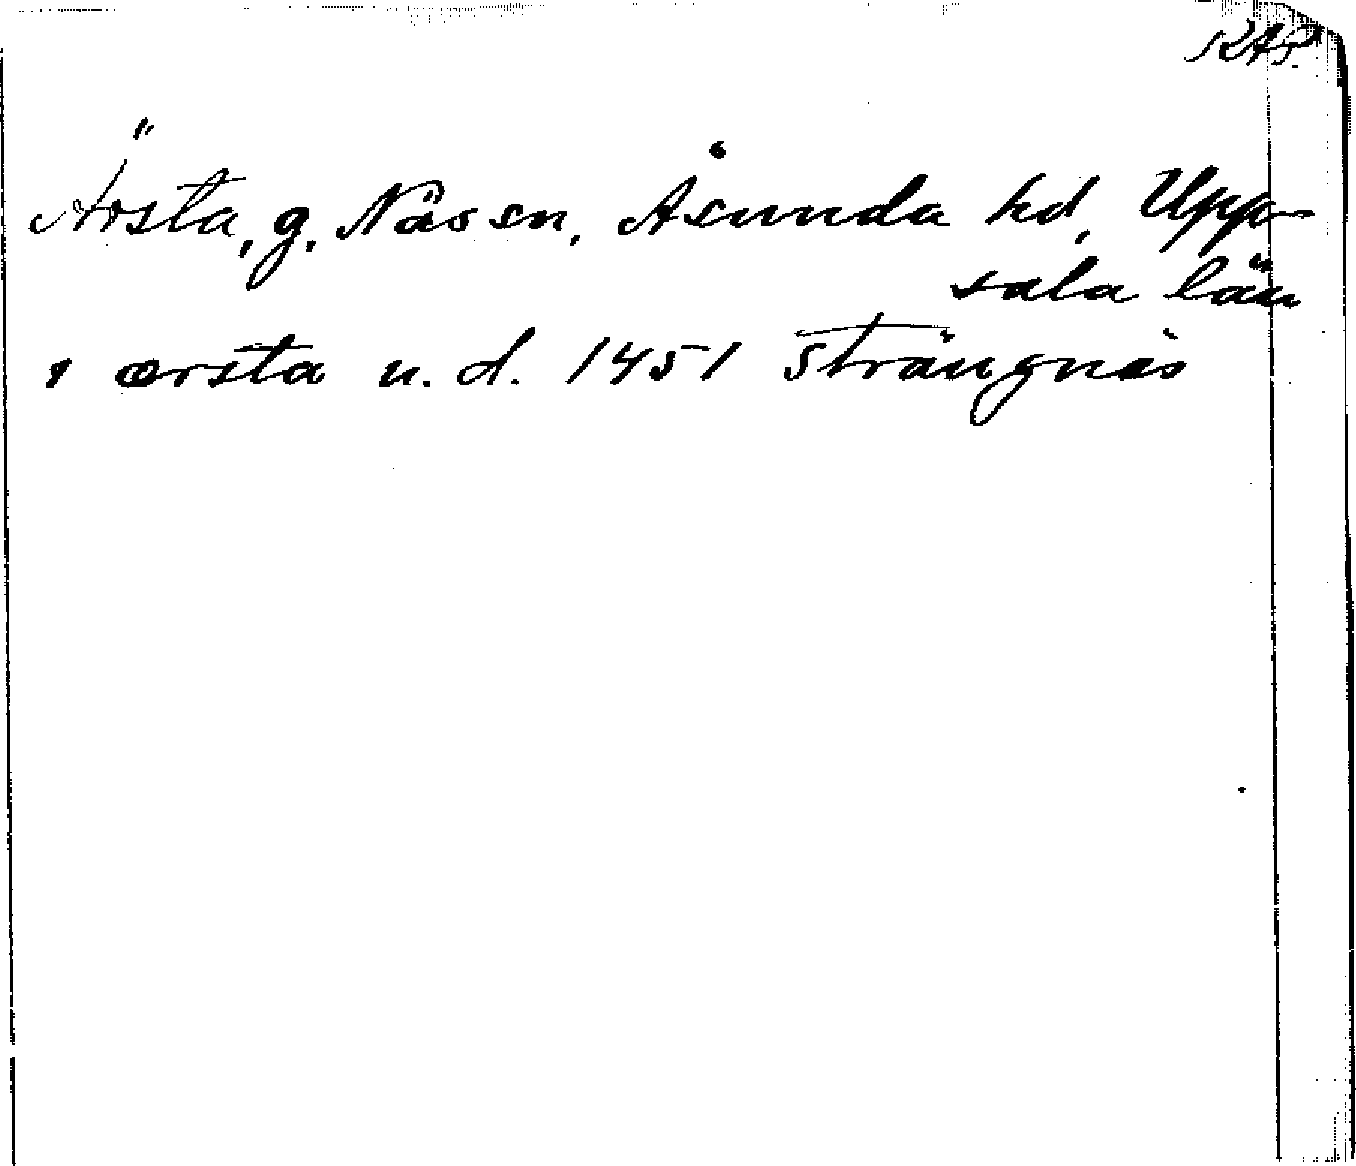 RAP.
Ärsta, g. Näs sn, Åsunda hd, Upp-
sala län
i ærsta u. d. 1451 Strängnäs